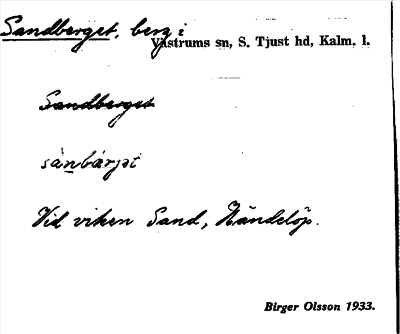 Sandberget, berg i
Västrums sn, S. Tjust hd, Kalm. l.
Sandberget
sànbárjət
Vid viken Sand, Händelöp.
Birger Olsson 1933.